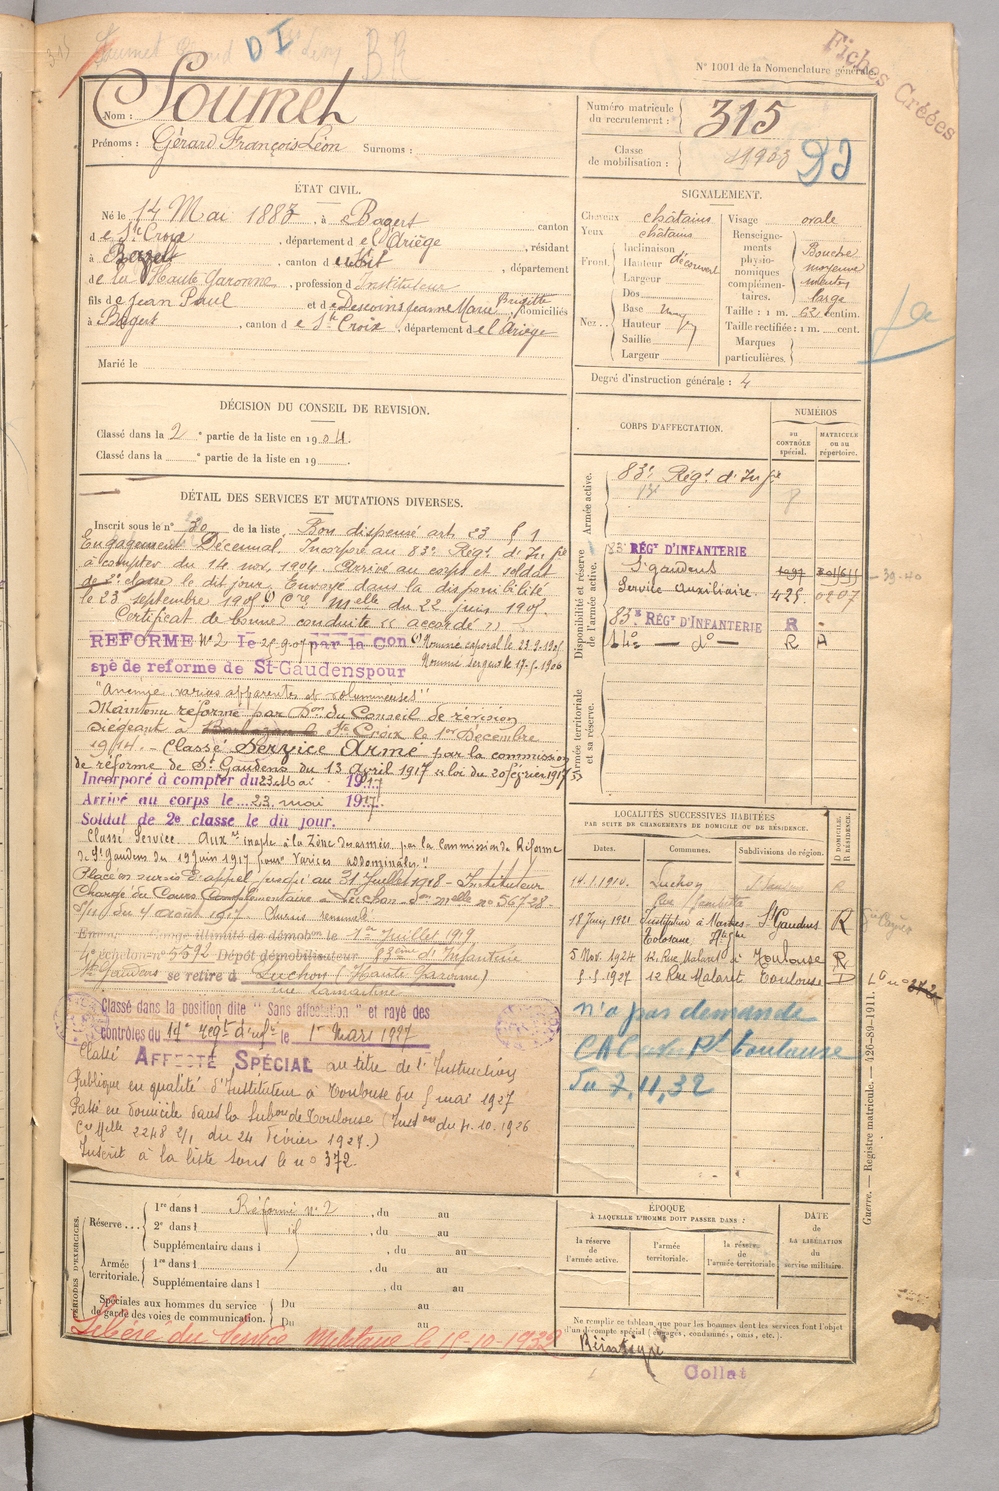 315
DI
BR
N° 1001 de la Nomenclature générale.
Fiches Créées
Nom : Soumet
Prénoms : Gérard François Léon Surnoms :
Numéro matricule du recrutement : 315
Classe de mobilisation : 1903
ÉTAT CIVIL.
Né le 14 Mai 1883, à Bagert canton
de Ste Croix, département de l'Ariège, résidant
à , canton d , département
de la Haute Garonne, profession d'Instituteur
fils de Jean Paul et de Descoins Jeanne Marie Brigitte, domiciliés
à Bagert, canton de Ste Croix, département de l'Ariège
Marié le
SIGNALEMENT.
Cheveux châtains
Yeux châtains
Front. Inclinaison
Hauteur découvert
Largeur
Nez. Dos
Base moy
Hauteur
Saillie
Largeur
Visage ovale
Renseignements physionomiques complémentaires. Bouche moyenne menton large
Taille : 1 m. 62 centim.
Taille rectifiée : 1 m. cent.
Marques particulières.
Degré d'instruction générale : 4
DÉCISION DU CONSEIL DE REVISION.
Classé dans la 2e partie de la liste en 1904.
Classé dans la e partie de la liste en 19 .
CORPS D'AFFECTATION.
NUMÉROS
au CONTRÔLE spécial.
MATRICULE ou au répertoire.
Armée active.
83e Régt d'Infie
Disponibilité et réserve de l'armée active.
83e RÉGt D'INFANTERIE
St gaudens
Service Auxiliaire. 425 0207
39-40
83e RÉGt D'INFANTERIE R -
14e — do — R A
Armée territoriale et sa réserve.
DÉTAIL DES SERVICES ET MUTATIONS DIVERSES.
Inscrit sous le n° 30 de la liste. Bon dispensé art. 23 § 1
Engagement Décennal. Incorporé au 83e Régt d'Infie
à compter du 14 nov. 1904. Arrivé au corps et soldat
de 2e classe le dit jour. Envoyé dans la disponibilité
le 23 septembre 1905 (1) Cre Melle du 22 juin 1905
Certificat de bonne conduite « accordé »
REFORMÉ N°2 le 25-9-07 par la Con (1) Nommé caporal le 23.9.1905
spé de reforme de St-Gaudens pour Nommé sergent le 17.5.1906
"Anémie, varices apparentes et volumineuses"
Maintenu réformé par Don du Conseil de révision
siégeant à Ste Croix le 1er Décembre
1914. - Classé Service Armé par la commission
de réforme de St Gaudens du 13 Avril 1917 « loi du 20 février 1917 »
Incorporé à compter du 23 Mai 1917
Arrivé au corps le 23 mai 1917.
Soldat de 2e classe le dit jour.
Classé Service Auxre inapte à la Zone des armées par la Commission de Réforme
de St Gaudens du 19 Juin 1917 pour "Varices abdominales."
Placé en sursis d'appel jusqu'au 31 Juillet 1918 - Instituteur
Chargé du Cours Complémentaire à Luchon - Don melle no 56728 -
5/11 du 4 août 1917. Sursis renouvelé
Envoyé en congé illimité de démobon le 1er Juillet 1919
4e échelon no 5592 Dépôt démobilisateur 83ème d'Infanterie
St Gaudens se retire à Luchon (Haute Garonne)
rue Lamartine
Classé dans la position dite "Sans affectation" et rayé des
contrôles du 14e Régt d'Infie le 1er Mars 1927
Classé AFFECTÉ SPÉCIAL au titre de l'Instruction
Publique en qualité d'Instituteur à Toulouse du 5 mai 1927
Passé en domicile dans la Subon de Toulouse (Inston du 4.10.1926
Cre Melle 2248 2/1 du 24 Février 1927.)
Inscrit à la liste sous le no 372.
LOCALITÉS SUCCESSIVES HABITÉES
PAR SUITE DE CHANGEMENTS DE DOMICILE OU DE RÉSIDENCE.
D DOMICILE. R RÉSIDENCE.
Dates. Communes. Subdivisions de région.
14.1.1910. Luchon St Gaudens R
18 Juin 1921 Instituteur à Martres-Tolosane Hte Gne St Gaudens R
5 Nov. 1924 12. Rue Malaret à Toulouse R
5.5.1927 12 Rue Malaret Toulouse D
n'a pas demandé
CAL Pl. toulouse
du 7.11.32
Guerre. — Registre matricule. — 426-89-1911.
PÉRIODES D'EXERCICES.
Réserve... 1re dans l Réformé no 2, du au
2e dans l , du au
Supplémentaire dans l , du au
Armée territoriale. 1re dans l , du au
Supplémentaire dans l , du au
Spéciales aux hommes du service de garde des voies de communication. Du au
Du au
Libéré du Service Militaire le 15-10-1932
ÉPOQUE
À LAQUELLE L'HOMME DOIT PASSER DANS :
la réserve de l'armée active.
l'armée territoriale.
la réserve de l'armée territoriale
DATE de LA LIBÉRATION du service militaire.
Ne remplir ce tableau que pour les hommes dont les services font l'objet
d'un décompte spécial (engagés, condamnés, omis, etc.).
Réintégré
Collat